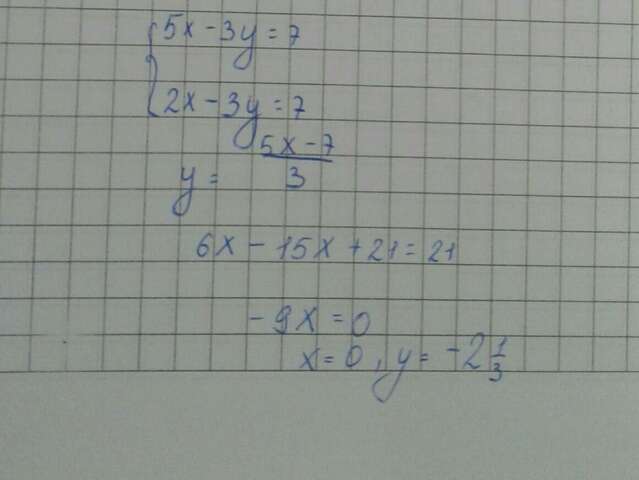 5x - 3y = 7
2x - 3y = 7
y = (5x - 7)/3
6x - 15x + 21 = 21
-9x = 0
x = 0, y = -2 1/3